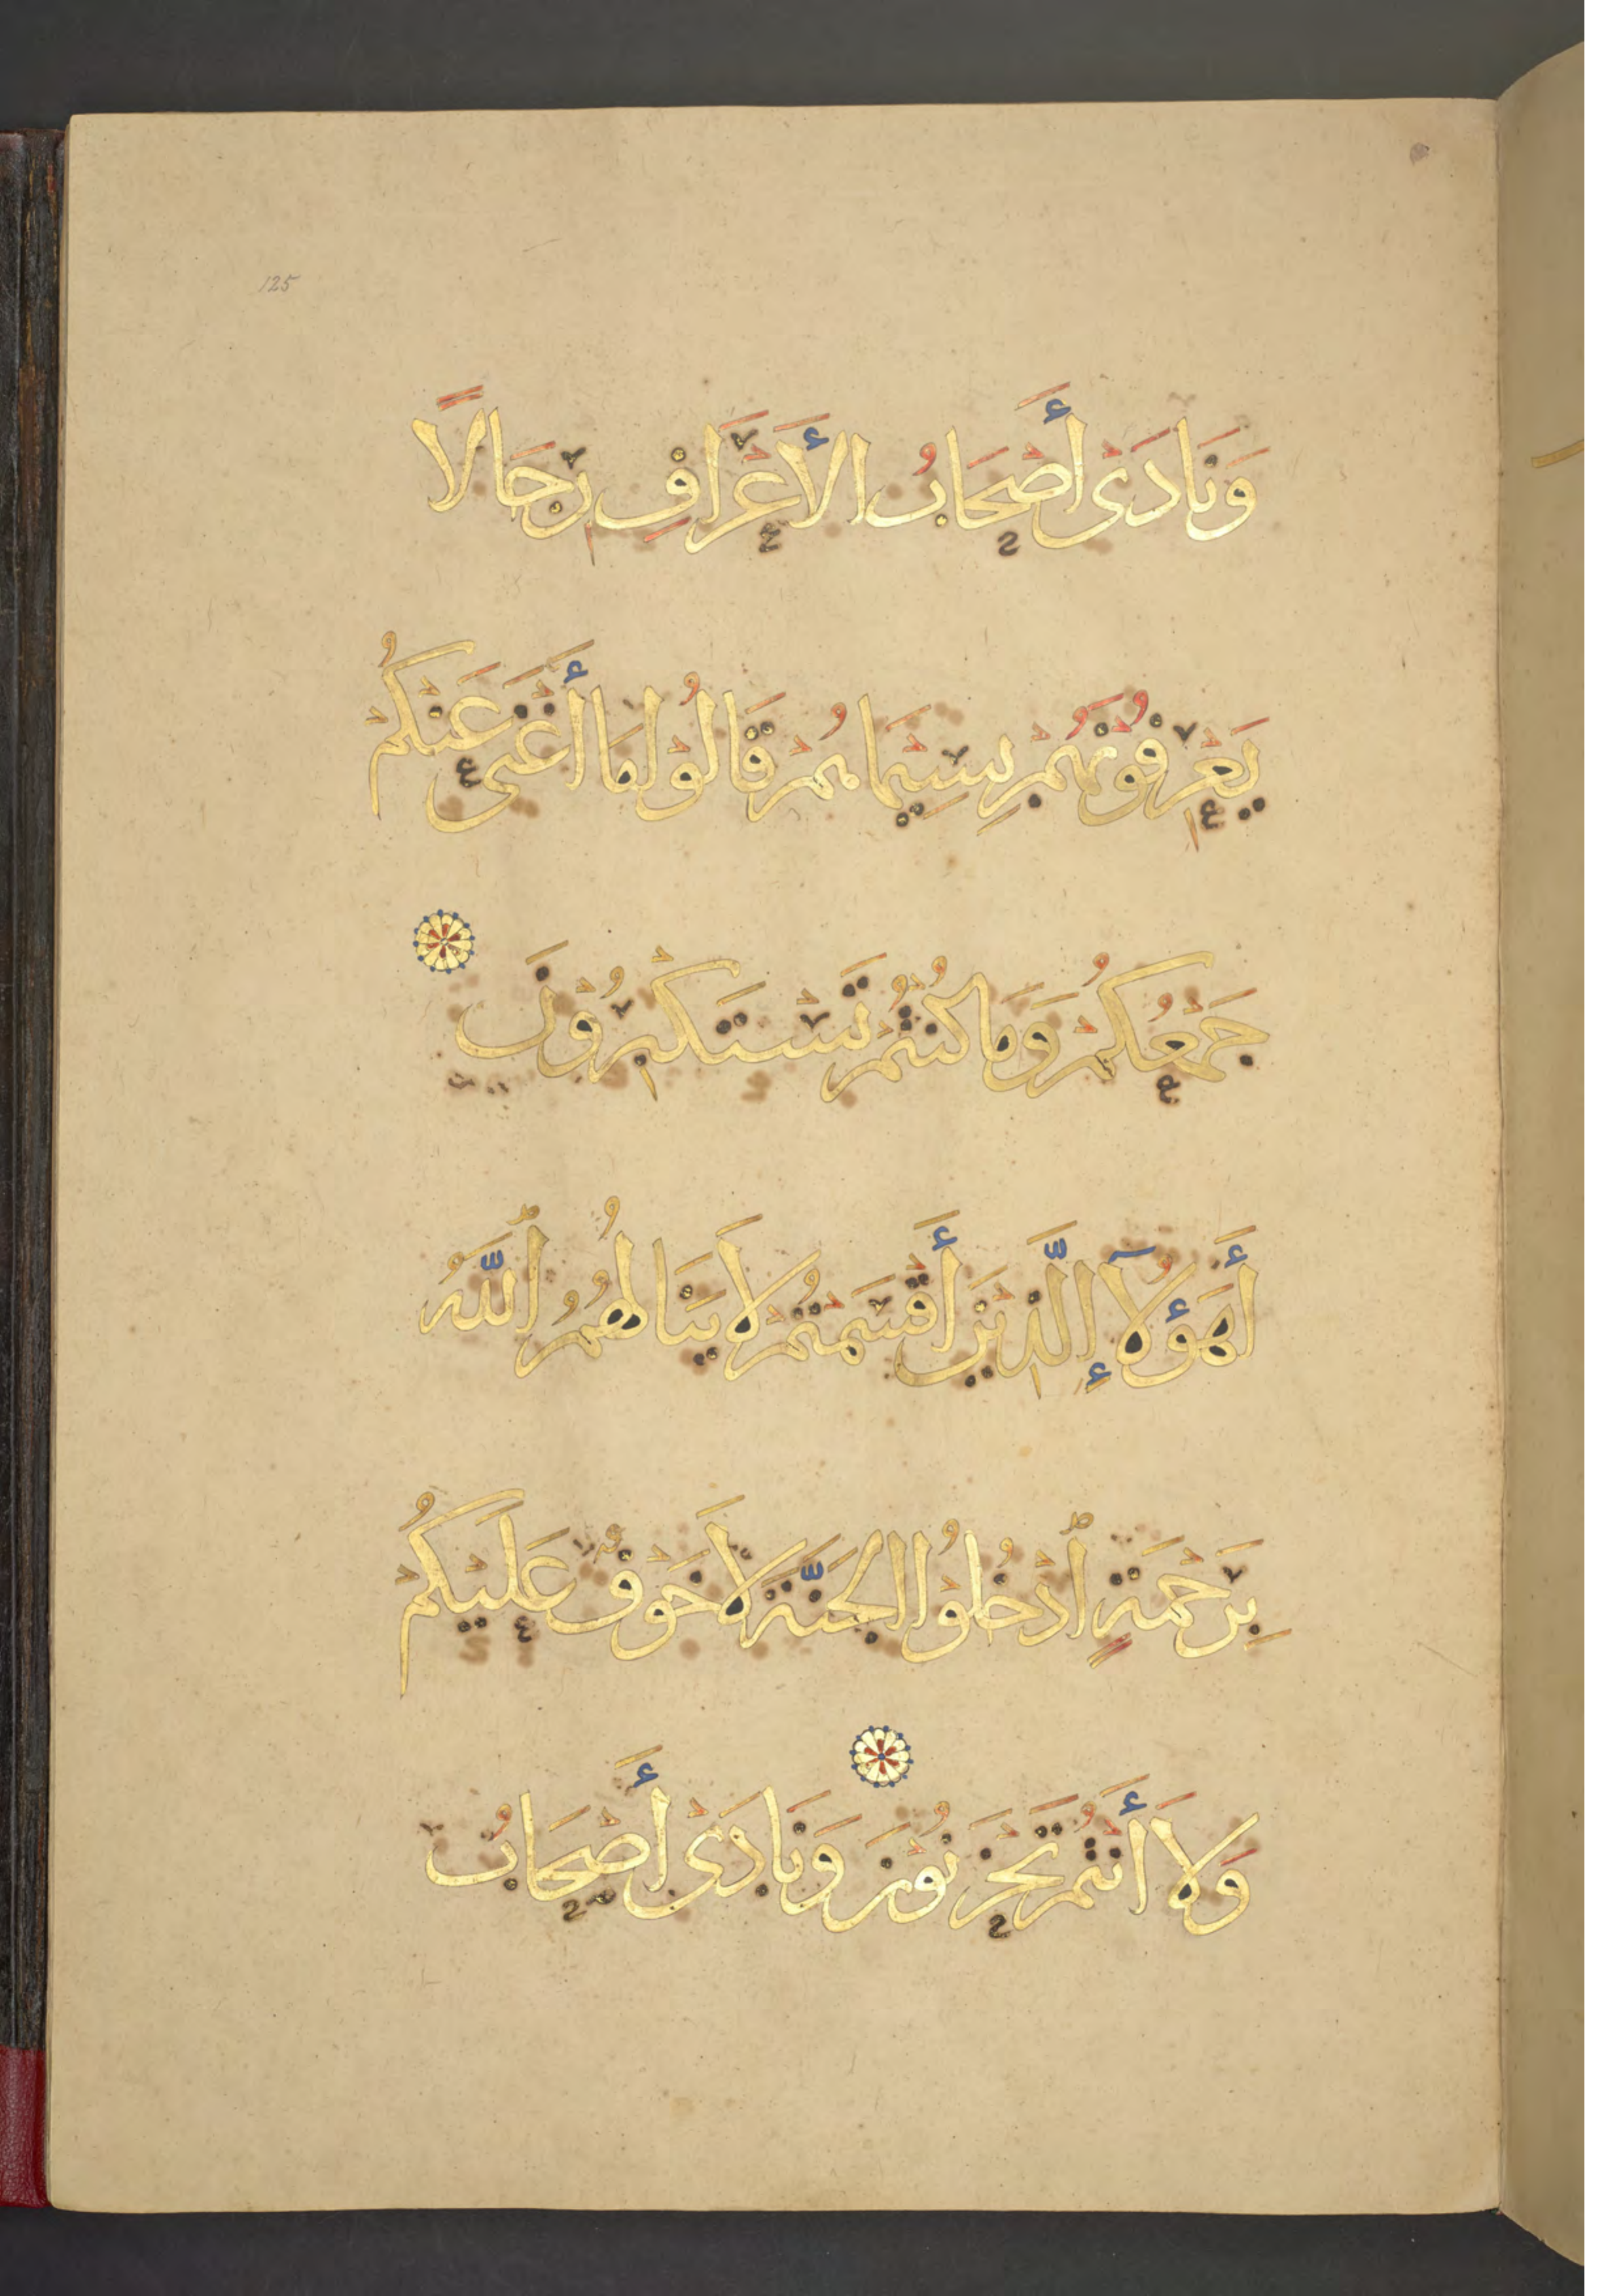 125
وَنَادَىْ أَصْحَابُ الأَعْرَافِ رِجَالًا
يَعْرِفُوْنَهُمْ بِسِيْمَاهُمْ قَالُوْا مَا أَغْنَى عَنْكُمْ
جَمْعُكُمْ وَمَا كُنْتُمْ تَسْتَكْبِرُوْنَ
أَهَؤُلآءِ الَّذِيْنَ أَقْسَمْتُمْ لَا يَنَالُهُمُ ٱللَّهُ
بِرَحْمَةٍ ٱدْخُلُوْا الجَنَّةَ لَا خَوْفٌ عَلَيْكُمْ
وَلَا أَنْتُمْ تَحْزَنُوْنَ وَنَادَىْ أَصْحَابُ